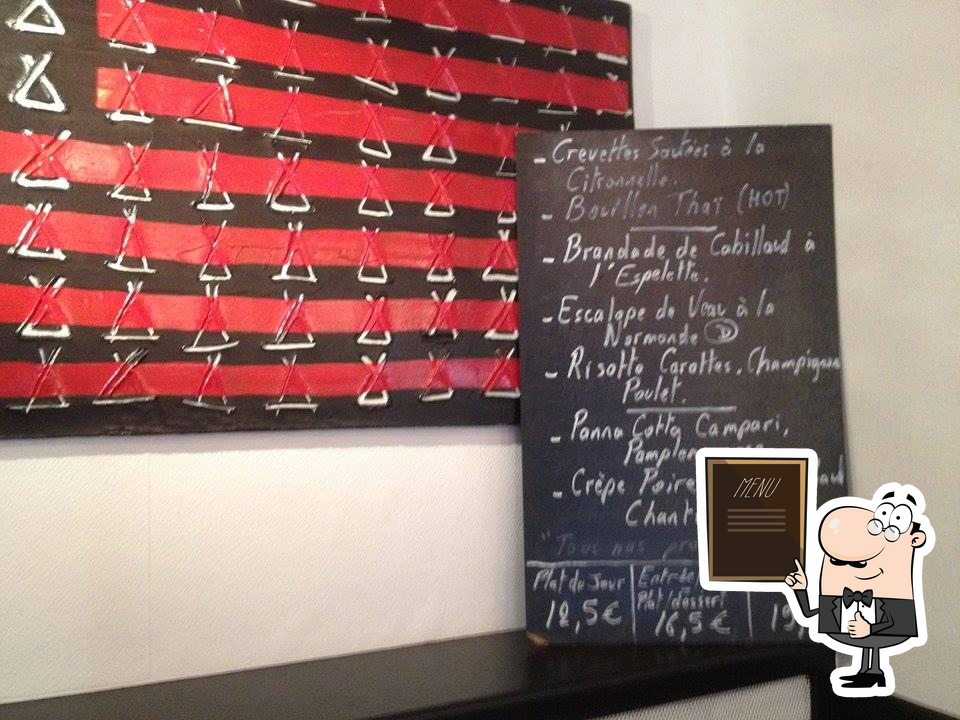 - Crevettes Sautées à la
Citronnelle.
- Bouillon Thaï (HOT)
- Brandade de Cabillaud à
l'Espelette.
- Escalope de Veau à la
Normande D
- Risotto Carottes, Champignon
Poulet.
- Panna Cotta Campari,
- Crêpe Poire
"Tous nos
Plat du Jour
12,5€
Entrée
Plat/dessert
16,5€
MENU